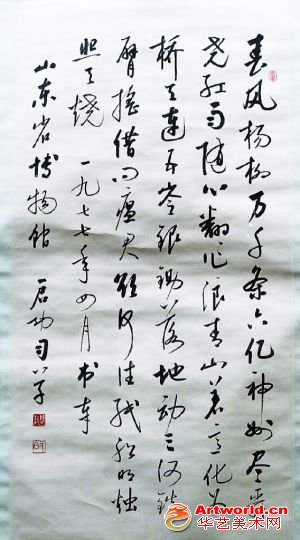 春风杨柳万千条六亿神州尽舜
尧红雨随心翻作浪青山着意化为
桥天连五岭银锄落地动三河铁
臂摇借问瘟君欲何往纸船明烛
照天烧 一九七七年四月书奉
山东省博物馆 启功习字
Artworld.cn
华艺美术网